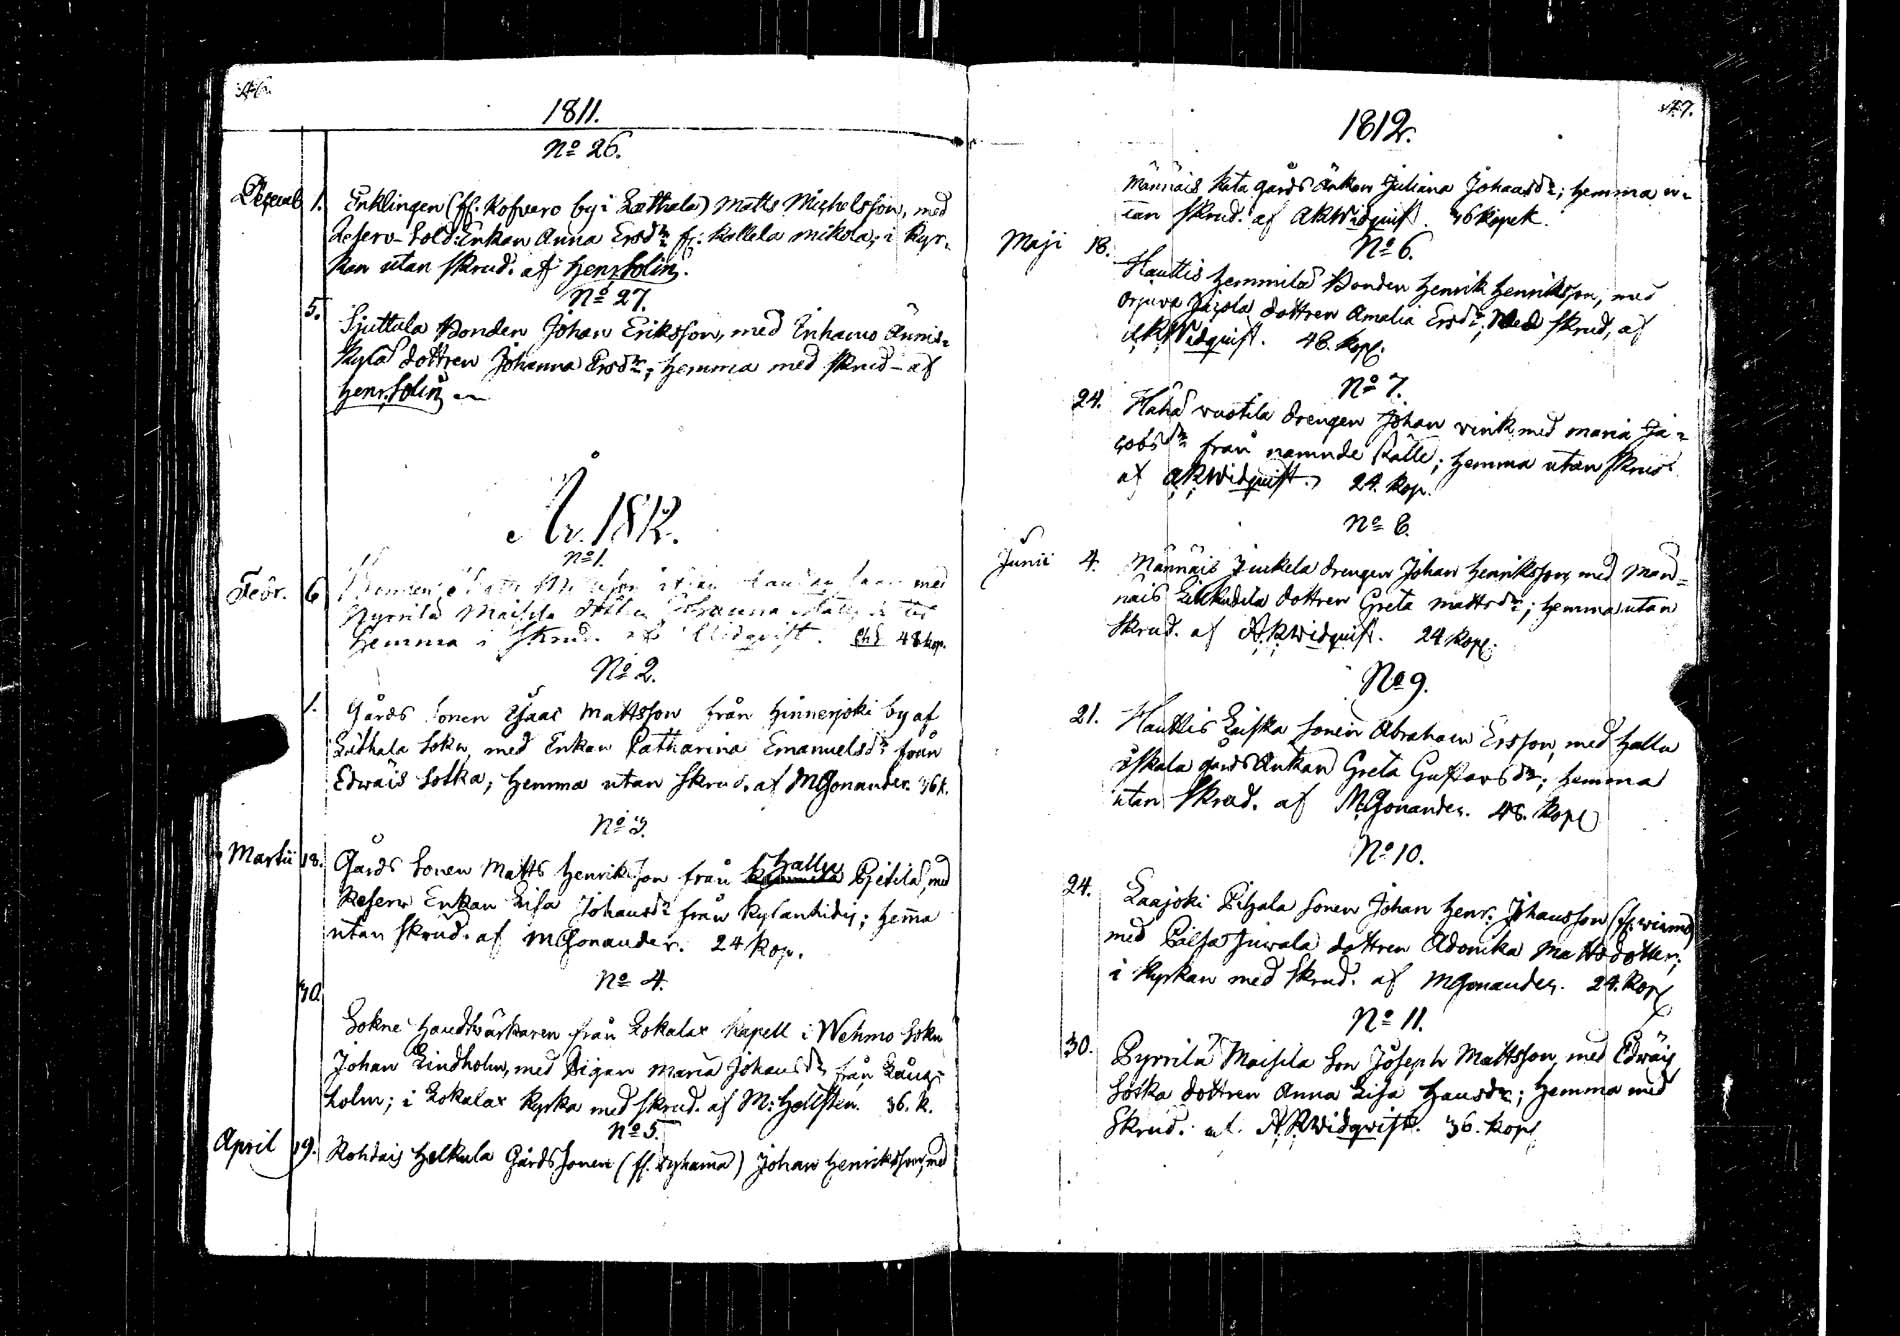 46.
1811.
No 26.
Decemb 1. Enklingen (ff. Kofvero by i Læthala) Matts Michelsson, med
Reserv-Sold: Enkan Anna Ersdr ff: Kallela Mikola; i Kyr-
kan utan skrud. af Henr. Solin.
No 27.
5. Sjuttula Bonden Johan Eriksson, med Inhavo Ännis-
Kylä dottren Johanna Ersdr; hemma med skrud - af
Henr. Solin
År. 1812.
No 1.
Febr. 6 med
Pyrrilä Maisila
hemma i skrud. af Widqvist. 48 kop.
No 2.
1. Gårds Sonen Isaac Mattsson från Hinnerjoki by af
Lethala Sokn, med Enkan Catharina Emanuelsdr från
Edwäis Sotka; hemma utan skrud. af MGonander. 36 k.
No 3.
Martii 18. Gårds Sonen Matts Henriksson från Hallu Pietilä, med
Reserv Enkan Lisa Johansdr från Kylänhidis; hemma
utan skrud. af MGonander. 24 kop.
No 4.
30.
Sokne Handtvärkaren från Lokalax Kapell i Wehmo Sokn
Johan Lindholm, med Pigan Maria Johansdr från Lång-
holm; i Lokalax Kyrka med skrud. af M: Hellsten. 36. k.
No 5.
April 19. Rohdais Helkula Gårds Sonen (ff. ) Johan Henriksson, med
47.
1812.
Männäis Kata gårds Änkan Juliana Johansdr; hemma u-
tan skrud. af ARWidqvist. 36 kopek.
No 6.
Maji 18. Hauttis Hemmilä Bonden Henrik Henriksson, med
Orjuva Jajola dottren Amalia Ersdr; Med skrud, af
ARWidqvist. 48. kop.
No 7.
24. Haha vuotila drengen Johan Virik med Maria Ja-
cobsdr från namnde ställe; hemma utan skrud
af ARWidqvist. 24. kop.
No 8.
Junii 4. Männäis Juckela drengen Johan Henriksson, med Män-
näis dottren Greta Mattsdr; hemma utan
skrud. af ARWidqvist. 24 kop.
No 9.
21. Hauttis Luska Sonen Abraham Ersson, med Hallu
Yskala gårds Enkan Greta Gustavsdr; hemma
utan skrud. af MGonander. 48. kop
No 10.
24. Laajoki Pihala Sonen Johan Henr. Johansson (ff. Wirmo)
med Palsa Juvala dottren Adonika Mattsdotter;
i Kyrkan med skrud. af MGonander. 24. kop
No 11.
30. Pyrrilä Maisila Son Joseph Mattsson, med Edwäis
Sotka dottren Anna Lisa Hansdr; hemma med
skrud. af ARWidqvist. 36. kop